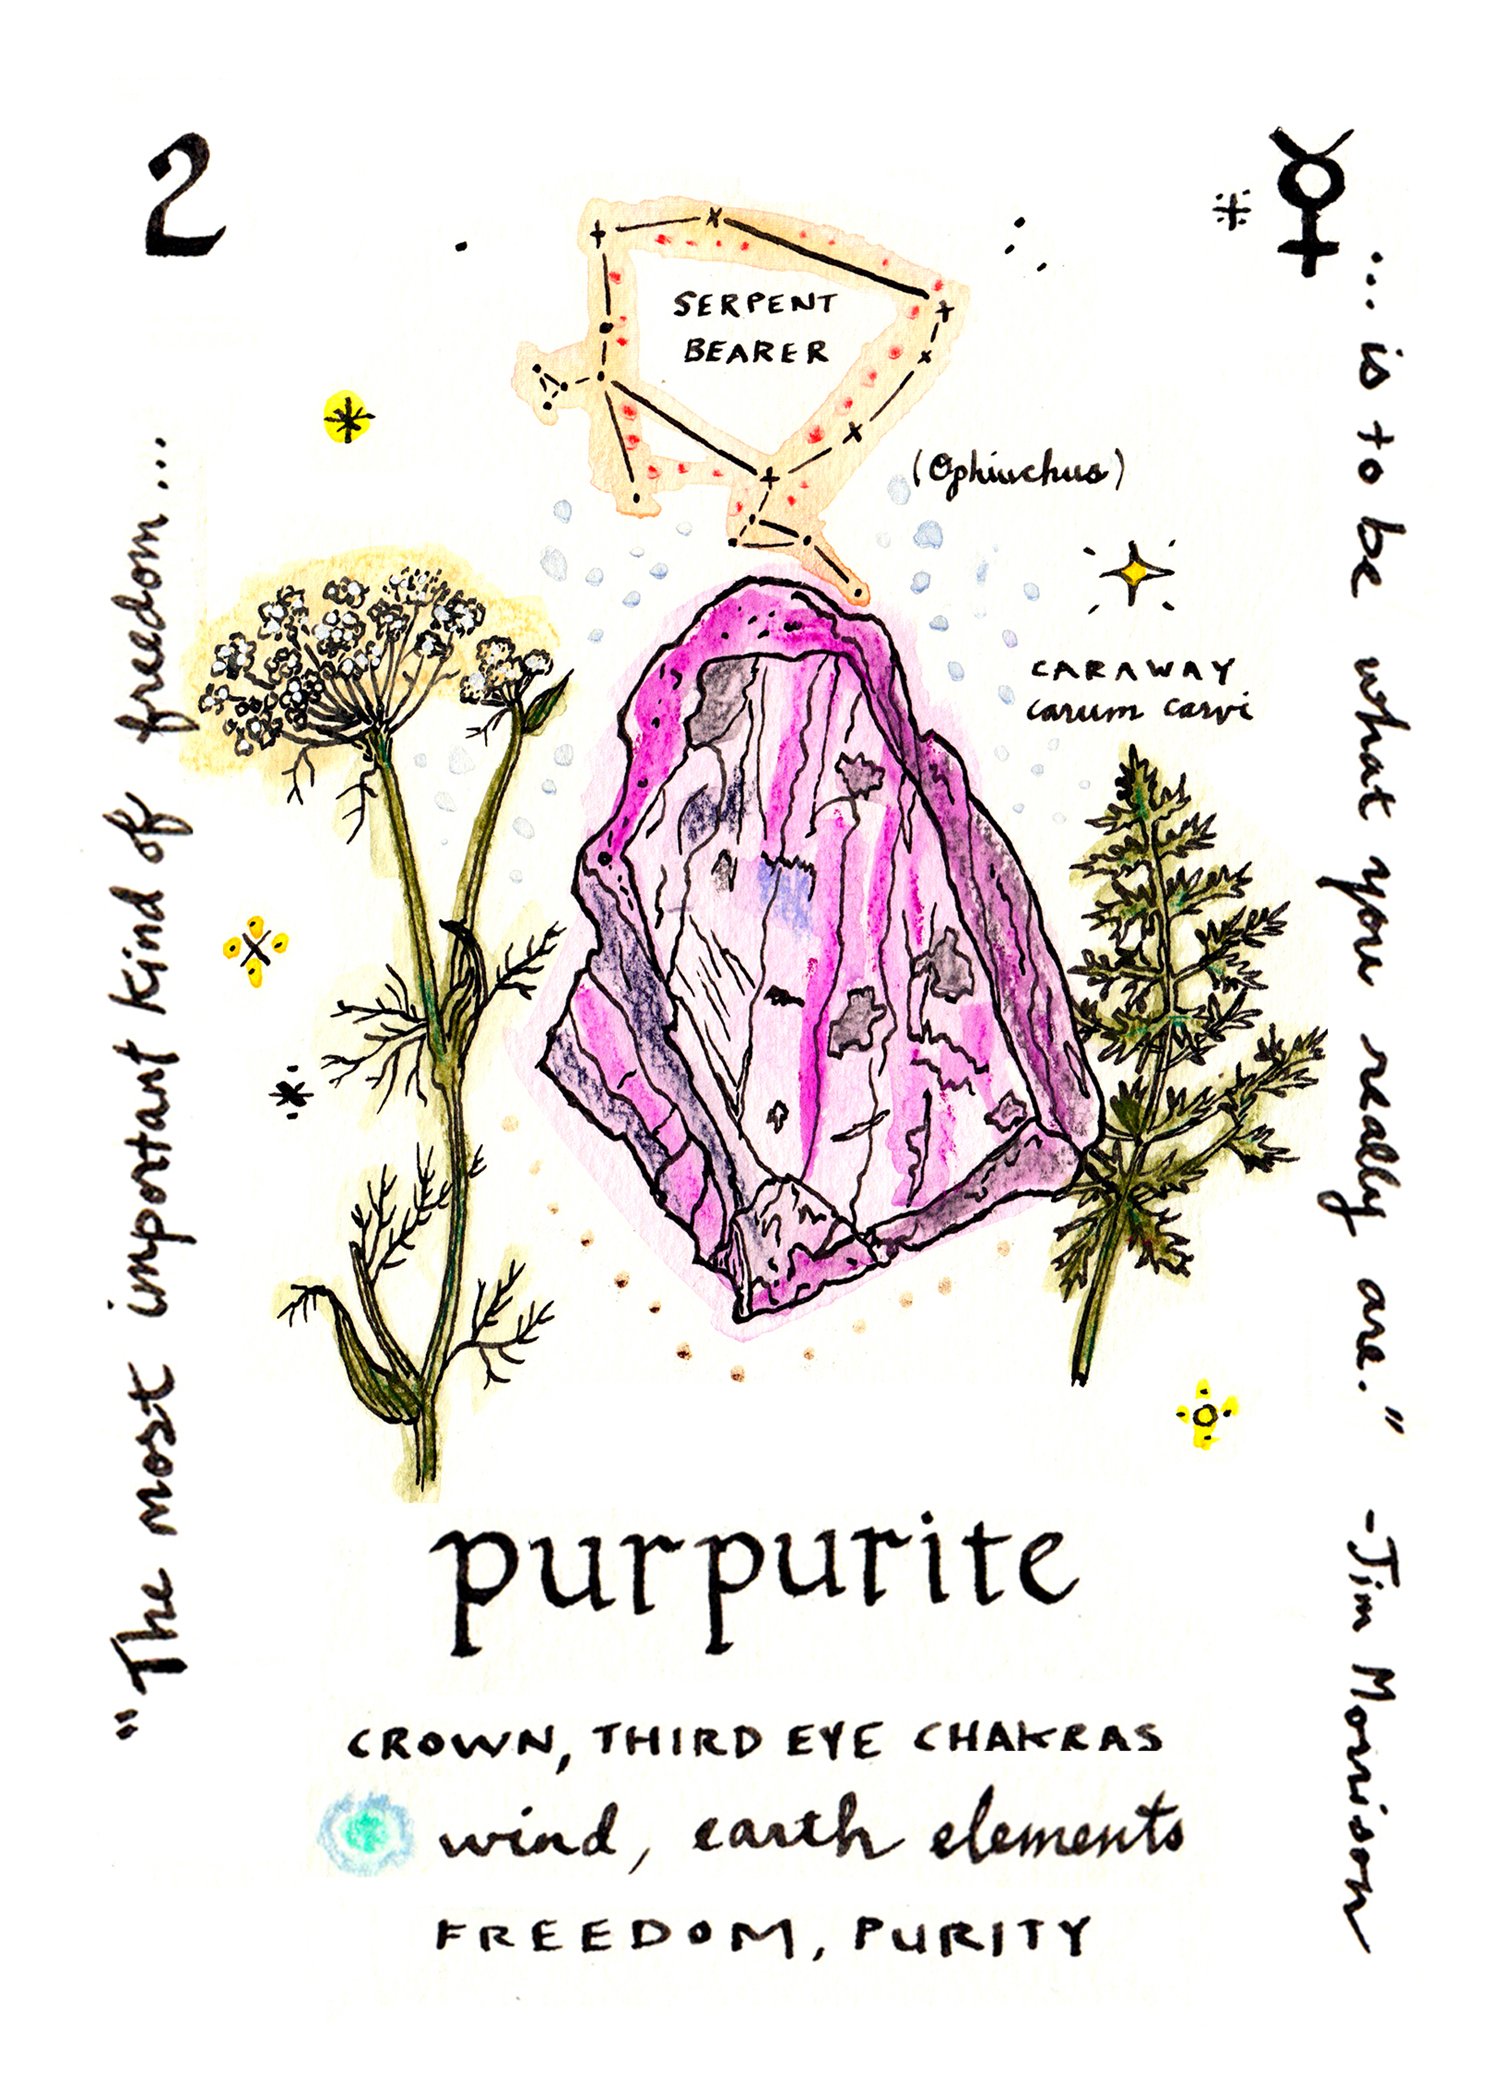 2
☿
SERPENT
BEARER
(Ophiuchus)
CARAWAY
carum carvi
"The most important kind of freedom...
... is to be what you really are." -Jim Morrison
purpurite
CROWN, THIRD EYE CHAKRAS
wind, earth elements
FREEDOM, PURITY